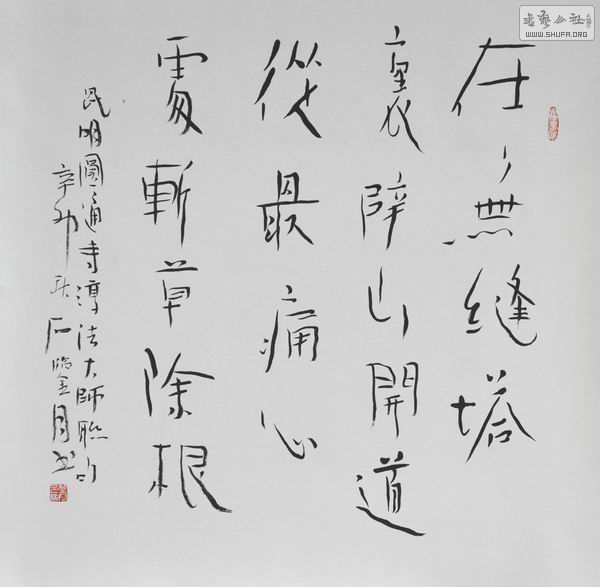 在無縫塔
裏辟山開道
從最痛心
處斬草除根
昆明圓通寺淳法大師聯句
辛卯秋石臨金月書
書藝公社
WWW.SHUFA.ORG